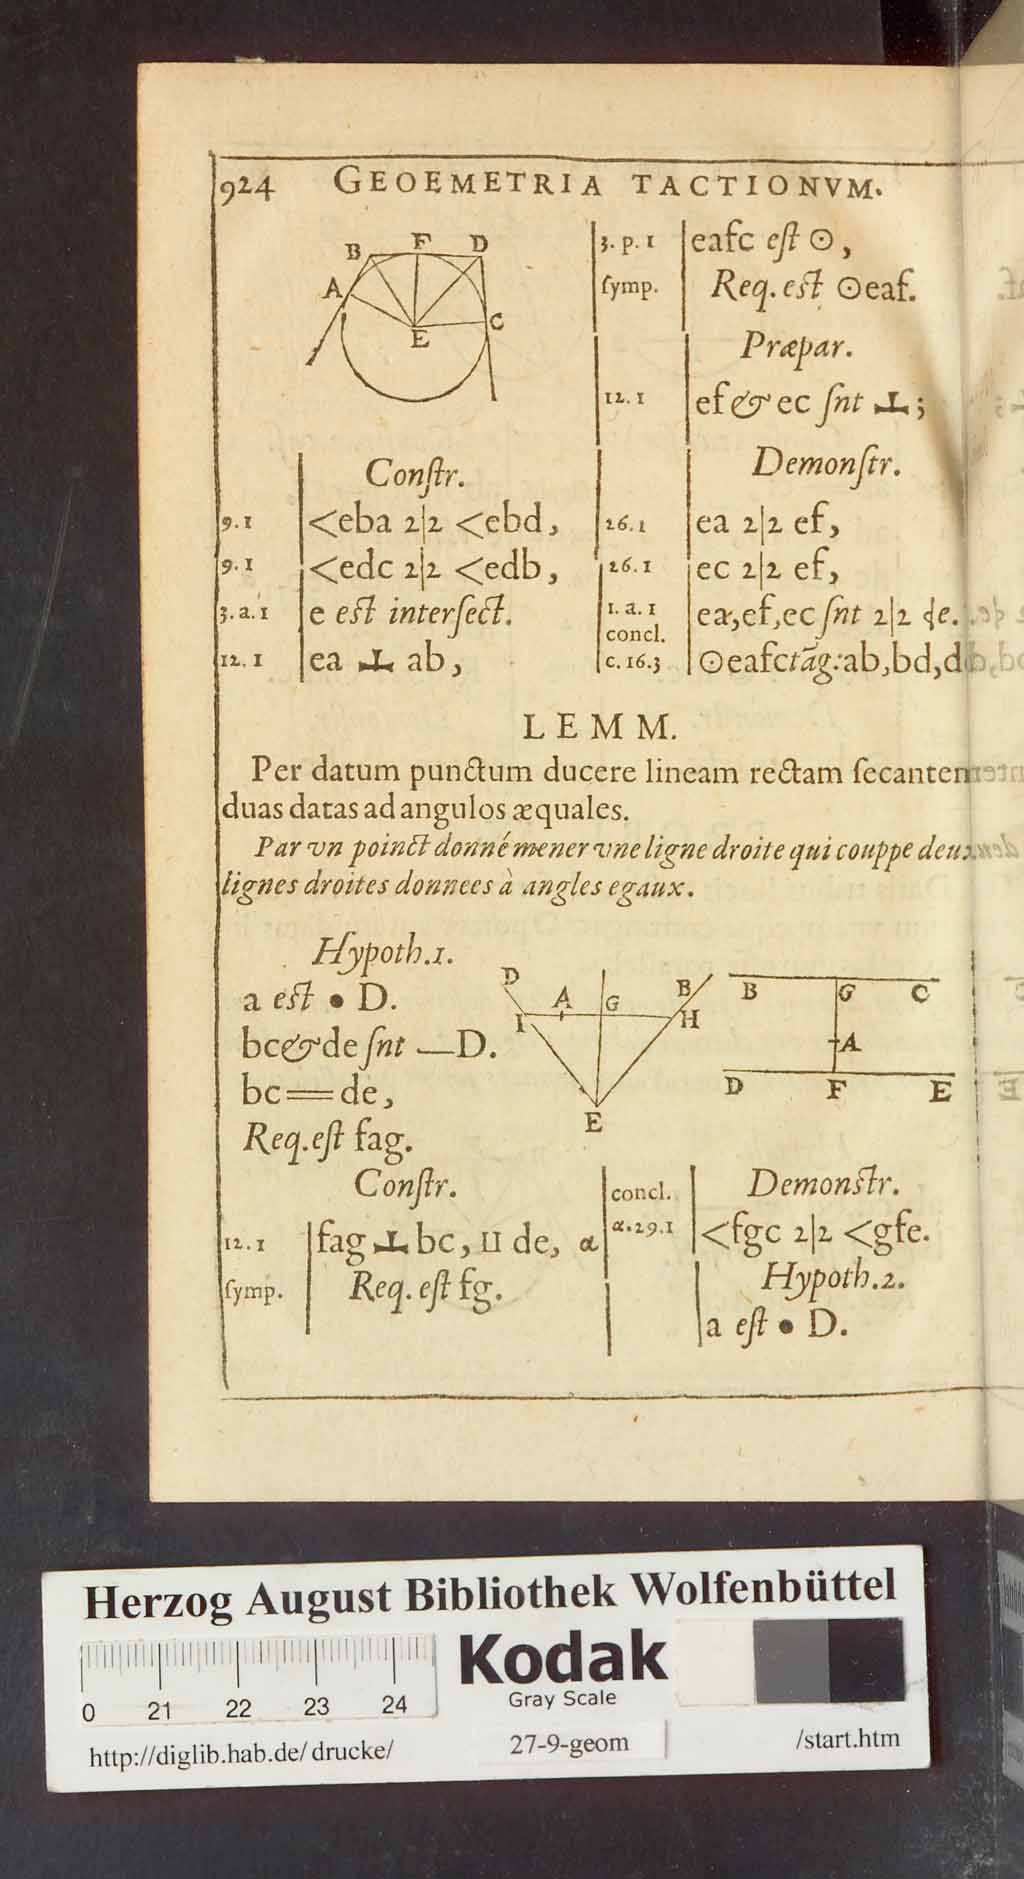 924 GEOEMETRIA TACTIONVM.
B F D
A
E
C
Conſtr.
9.1 <eba 2|2 <ebd,
9.1 <edc 2|2 <edb,
3.a.1 e eſt interſect.
12.1 ea ⊥ ab,
3.p.1 eafc eſt ⊙,
ſymp. Req. eſt ⊙eaf.
Præpar.
12.1 ef & ec ſnt ⊥;
Demonſtr.
26.1 ea 2|2 ef,
26.1 ec 2|2 ef,
1.a.1 ea,ef,ec ſnt 2|2 de.
concl.
c.16.3 ⊙eafc tãg: ab,bd,d
LEMM.
Per datum punctum ducere lineam rectam ſecantem
duas datas ad angulos æquales.
Par vn poinct donné mener vne ligne droite qui couppe deux
lignes droites donnees à angles egaux.
Hypoth.1.
a eſt • D.
bc & de ſnt —D.
bc = de,
Req. eſt fag.
D A G B
I H
E
B G C
A
D F E
Conſtr.
12.1 fag ⊥ bc, ⊔ de, α
ſymp. Req. eſt fg.
concl. Demonſtr.
α.29.1 <fgc 2|2 <gfe.
Hypoth.2.
a eſt • D.
Herzog August Bibliothek Wolfenbüttel
Kodak
Gray Scale
0 21 22 23 24
http://diglib.hab.de/drucke/ 27-9-geom /start.htm